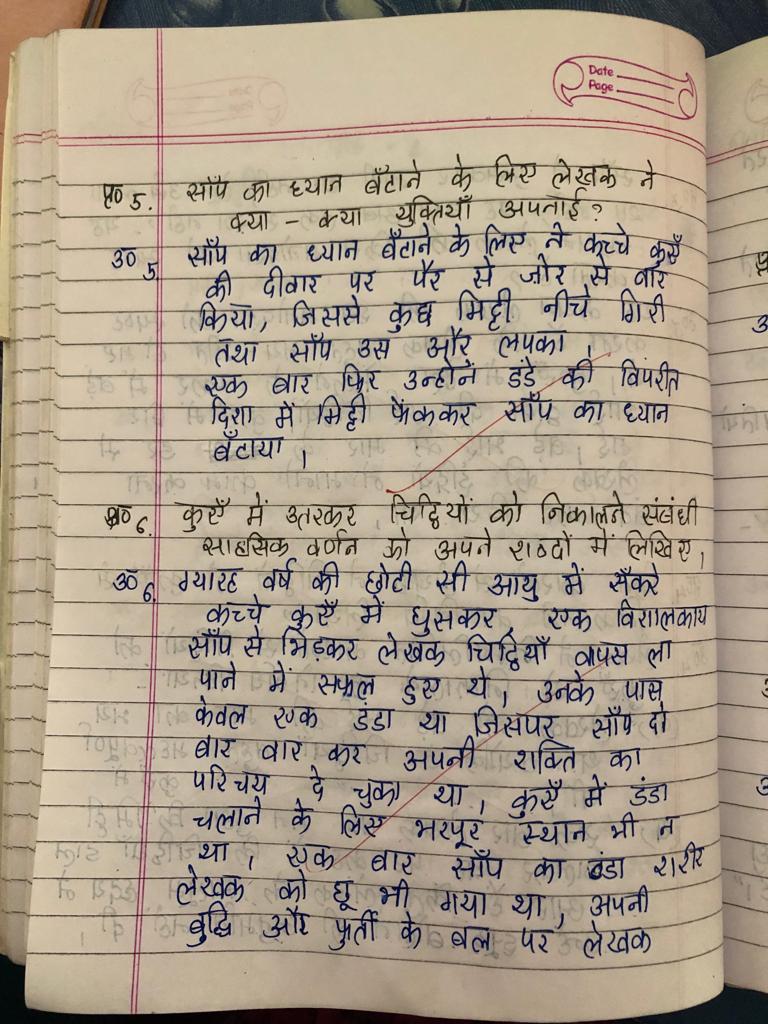 Date
Page
प्र० 5. साँप का ध्यान बँटाने के लिए लेखक ने
क्या - क्या युक्तियाँ अपनाई ?
उ० 5. साँप का ध्यान बँटाने के लिए ने कच्चे कुएँ
की दीवार पर पैर से जोर से वार
किया, जिससे कुछ मिट्टी नीचे गिरी
तथा साँप उस और लपका ।
एक बार फिर उन्होनें डंडे की विपरीत
दिशा में मिट्टी फेंककर साँप का ध्यान
बँटाया ।
प्र० 6. कुएँ में उतरकर चिट्ठियों को निकालने संबंधी
साहसिक वर्णन को अपने शब्दों में लिखिए ।
उ० 6. ग्यारह वर्ष की छोटी सी आयु में सँकरे
कच्चे कुएँ में घुसकर, एक विशालकाय
साँप से भिड़कर लेखक चिट्ठियाँ वापस ला
पाने में सफल हुए थे, उनके पास
केवल एक डंडा था जिसपर साँप दो
बार वार कर अपनी शक्ति का
परिचय दे चुका था, कुएँ में डंडा
चलाने के लिए भरपूर स्थान भी न
था, एक बार साँप का ठंडा शरीर
लेखक को छू भी गया था, अपनी
बुद्धि और फुर्ती के बल पर लेखक